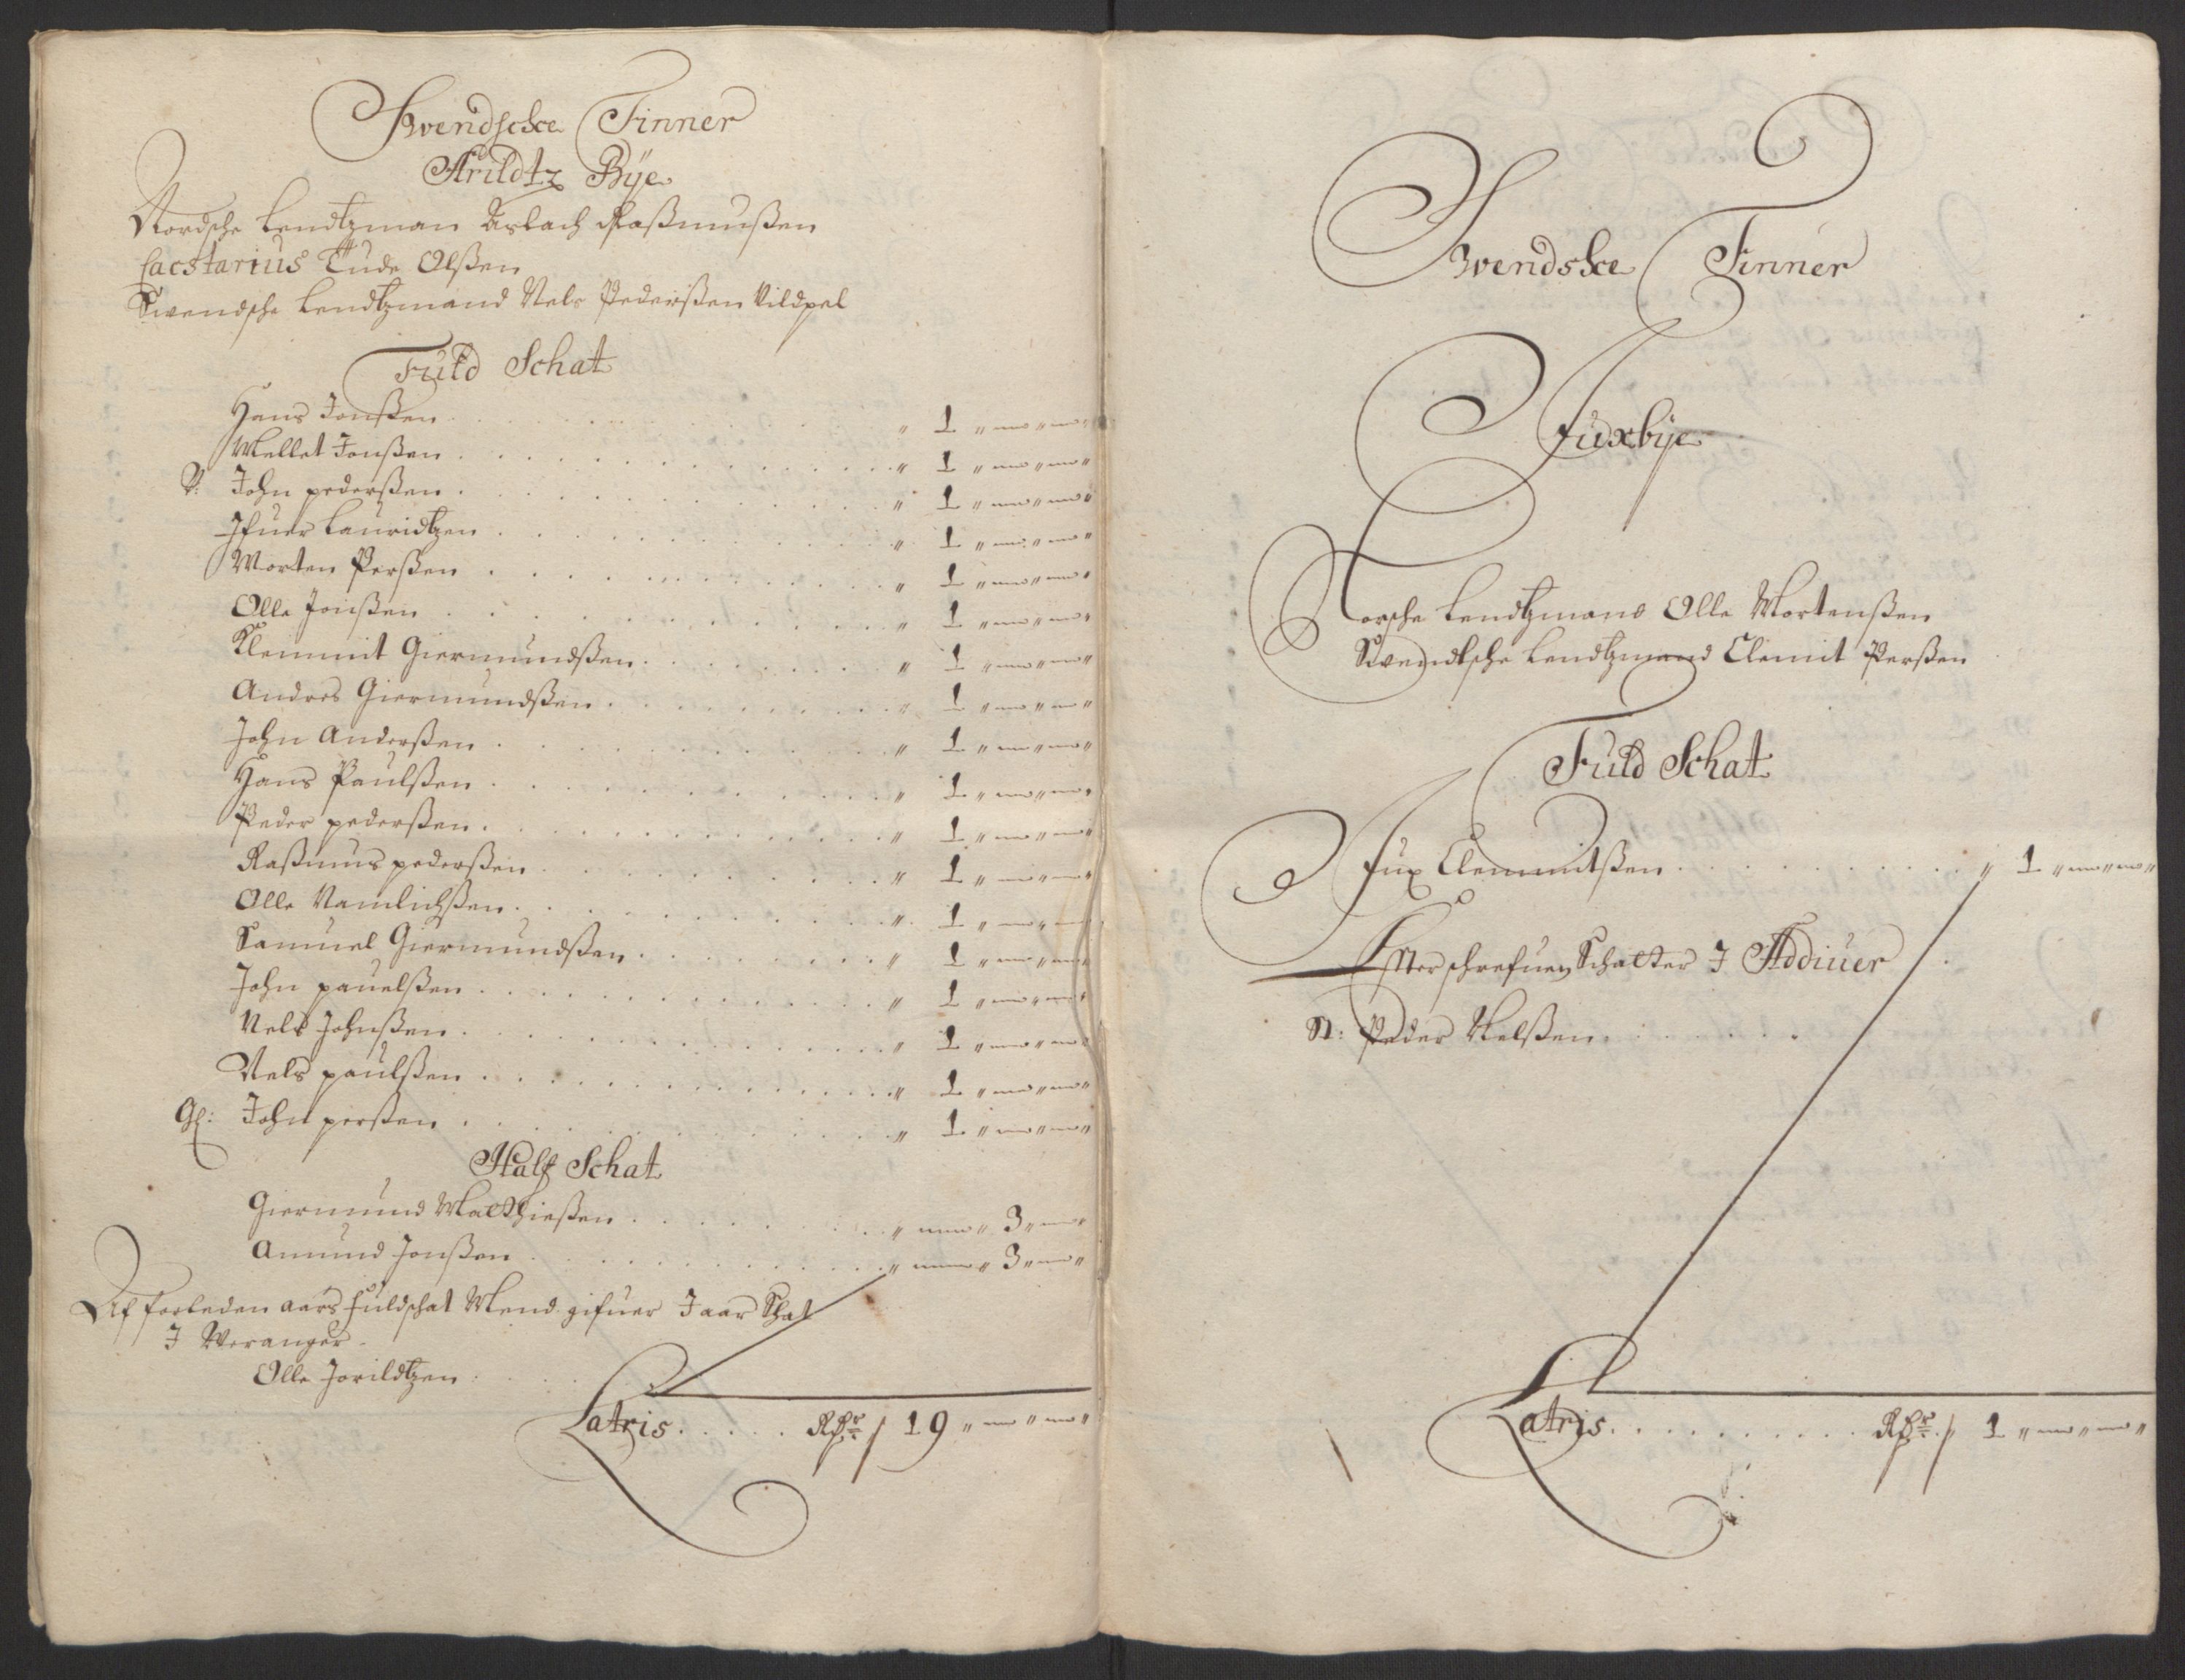 Svendsche Finner
Arildtz Bÿe
Nordsche Lendtzman Aslach Rasmusßen
Tude Olßen
Svendsche Lendtzmand Nels Pederßen Kildpel
Fuld Schat
Hans Jonßen . . . " 1 " — " — "
Mellet Jonßen . . . " 1 " — " — "
P: John pederßen . . . " 1 " — " — "
Ifuer Lauridtzen . . . " 1 " — " — "
Morten Perßen . . . " 1 " — " — "
Olle Jonßen . . . " 1 " — " — "
Klemmit Giermundßen . . . " 1 " — " — "
Andres Giermundßen . . . " 1 " — " — "
John Anderßen . . . " 1 " — " — "
Hans Paulßen . . . " 1 " — " — "
Peder pederßen . . . " 1 " — " — "
Raßmus pederßen . . . " 1 " — " — "
Olle . . . " 1 " — " — "
Samuel Giermundßen . . . " 1 " — " — "
John pauelßen . . . " 1 " — " — "
Nels Johnßen . . . " 1 " — " — "
Nels paulßen . . . " 1 " — " — "
Gl: John perßen . . . " 1 " — " — "
Half Schat
Giermund Matthießen . . . " — " 3 " — "
Amund Jonßen . . . " — " 3 " — "
Af forleden aars fuldschat Mend gifuer J aar Schat
J Weranger
Olle Jorildtzen . . .
Latris . . . Rdr 19 " — " — "
Svendske Finner
Juxbÿe
Norsche Lendtzmand Olle Mortenßen
Svendtsche Lendtzmand Clemit Perßen
Fuld Schat
Jux Clemmitßen . . . " 1 " — " — "
Efterschrefuen Schatter J Addiuer
N: Peder Nelßen . . .
Latris . . . Rdr 1 " — " — "